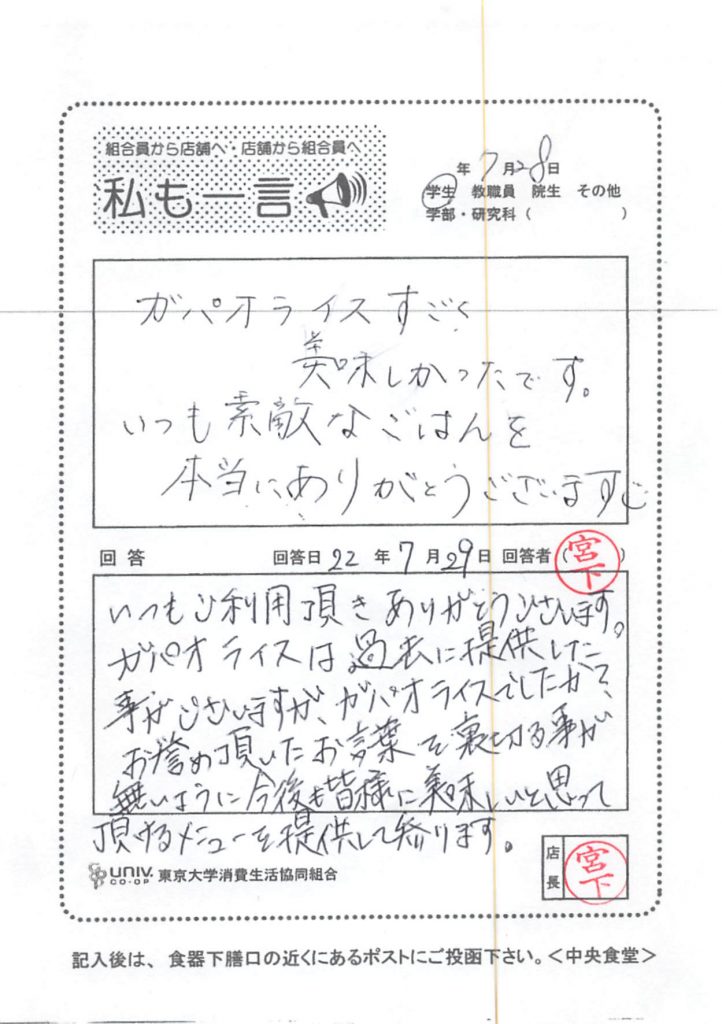 組合員から店舗へ・店舗から組合員へ
私も一言
年 7月28日
学生 教職員 院生 その他
学部・研究科（ ）
ガパオライスすごく
美味しかったです。
いつも素敵なごはんを
本当にありがとうございます
回答 回答日 22 年 7 月 29 日 回答者（宮下）
いつもご利用頂きありがとうございます。
ガパオライスは過去に提供した
事がございますが、ガパオライスでしたか?
お誉め頂いたお言葉を裏切る事が
無いように今後も皆様に美味しいと思って
頂けるメニューを提供して参ります。
UNIV. CO-OP 東京大学消費生活協同組合
店長 宮下
記入後は、食器下膳口の近くにあるポストにご投函下さい。＜中央食堂＞